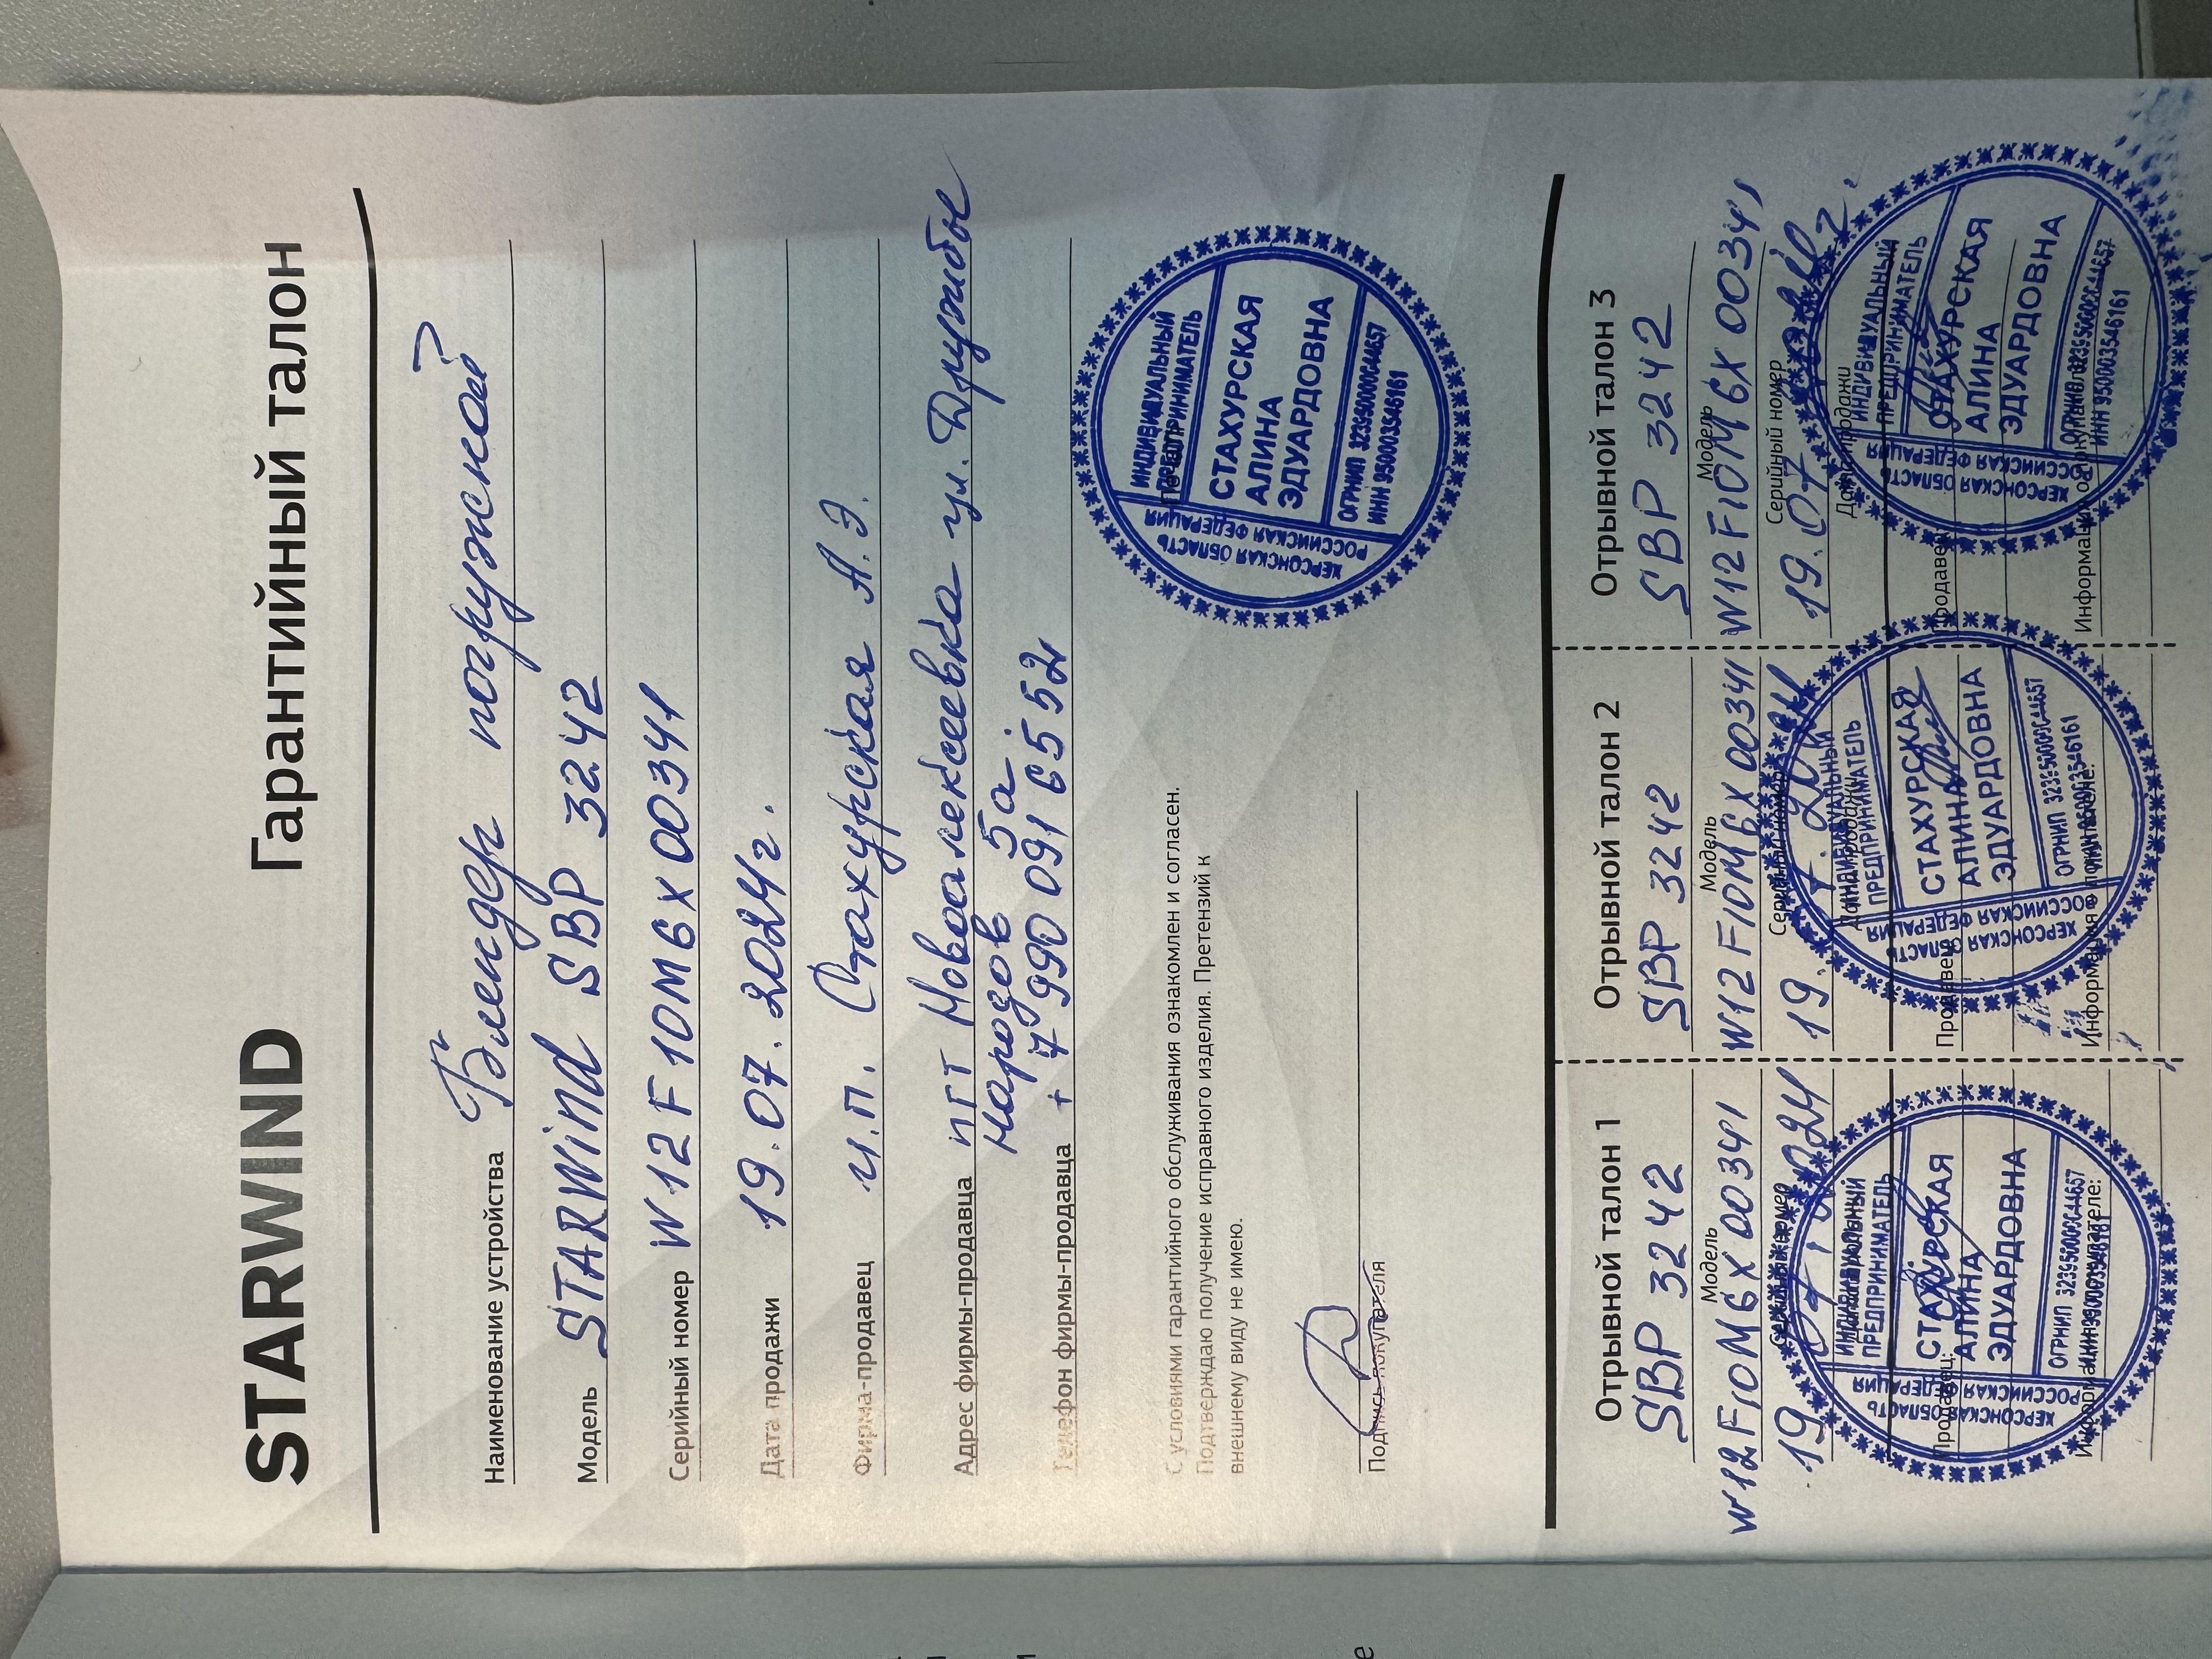 STARWIND Гарантийный талон
Наименование устройства Блендер погружной
Модель STARWind SBP 3242
Серийный номер W12F10M6X00341
Дата продажи 19.07.2024г.
Фирма-продавец и.п. Стахурская А.Э.
Адрес фирмы-продавца пгт Новоалексеевка ул. Дружбы
народов 5а.
Телефон фирмы-продавца +7990 091 65 52
Печать
ИНДИВИДУАЛЬНЫЙ
ПРЕДПРИНИМАТЕЛЬ
СТАХУРСКАЯ
АЛИНА
ЭДУАРДОВНА
ОГРНИП 323950000044657
ИНН 950003546161
ХЕРСОНСКАЯ ОБЛАСТЬ
РОССИЙСКАЯ ФЕДЕРАЦИЯ
С условиями гарантийного обслуживания ознакомлен и согласен.
Подтверждаю получение исправного изделия. Претензий к
внешнему виду не имею.
Подпись покупателя
Отрывной талон 1
SBP 3242
Модель
W12F10M6X00341
Серийный номер
19.07.2024
Дата продажи
Продавец:
Информация о покупателе:
ИНДИВИДУАЛЬНЫЙ
ПРЕДПРИНИМАТЕЛЬ
СТАХУРСКАЯ
АЛИНА
ЭДУАРДОВНА
ОГРНИП 323950000044657
ИНН 950003546161
ХЕРСОНСКАЯ ОБЛАСТЬ
РОССИЙСКАЯ ФЕДЕРАЦИЯ
Отрывной талон 2
SBP 3242
Модель
W12F10M6X00341
Серийный номер
19.07.2024
Дата продажи
Продавец:
Информация о покупателе:
ИНДИВИДУАЛЬНЫЙ
ПРЕДПРИНИМАТЕЛЬ
СТАХУРСКАЯ
АЛИНА
ЭДУАРДОВНА
ОГРНИП 323950000044657
ИНН 950003546161
ХЕРСОНСКАЯ ОБЛАСТЬ
РОССИЙСКАЯ ФЕДЕРАЦИЯ
Отрывной талон 3
SBP 3242
Модель
W12F10M6X00341
Серийный номер
19.07.2024г.
Дата продажи
Продавец:
Информация о покупателе:
ИНДИВИДУАЛЬНЫЙ
ПРЕДПРИНИМАТЕЛЬ
СТАХУРСКАЯ
АЛИНА
ЭДУАРДОВНА
ОГРНИП 323950000044657
ИНН 950003546161
ХЕРСОНСКАЯ ОБЛАСТЬ
РОССИЙСКАЯ ФЕДЕРАЦИЯ